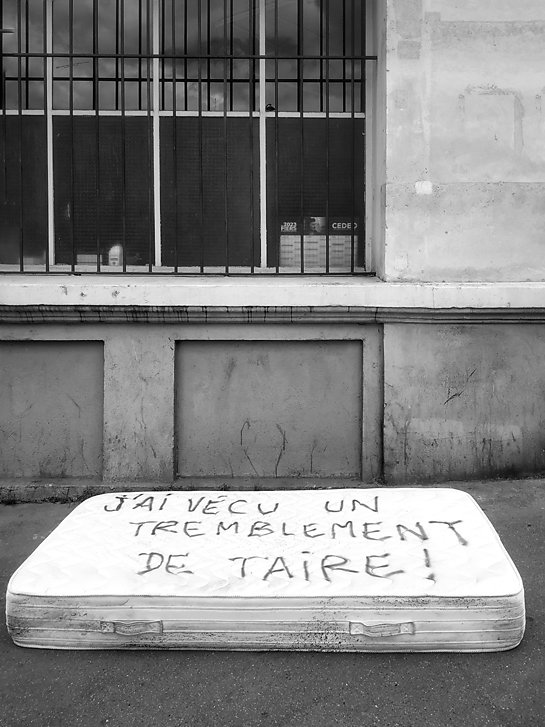 2023
CEDEO
J'AI VÉCU UN
TREMBLEMENT
DE TAIRE !